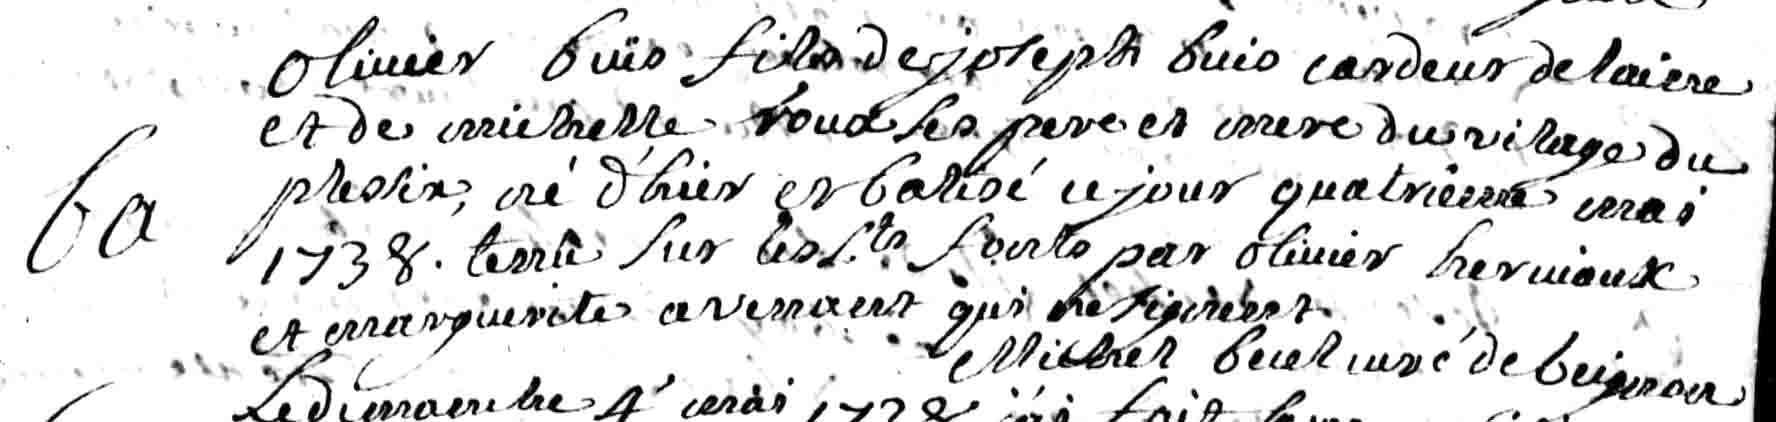 olivier buis fils de joseph buis cardeur de laine
et de michelle roua ses pere et mere du vilage du
ba
plesix, né d'hier et batisé ce jour quatrieme mai
1738. tenu sur les sts fonts par olivier hervioux
et marguerite avenant qui ne signent.
Michel curé de beignon
Le dimanche 4e mai 1738 j'ai fait